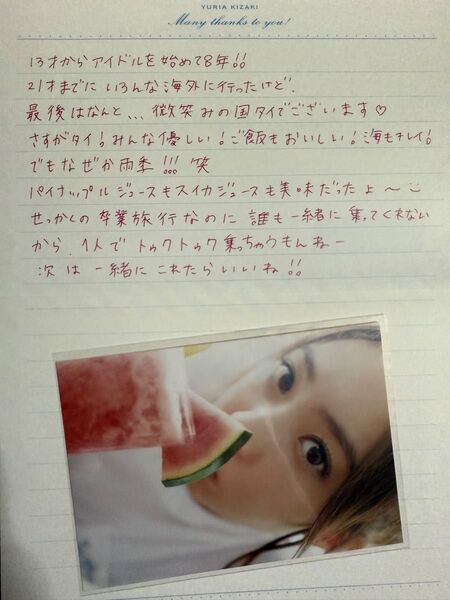 YURIA KIZAKI
Many thanks to you!
13才からアイドルを始めて8年!!
21才までにいろんな海外に行ったけど、
最後はなんと...微笑みの国タイでございます♡
さすがタイ!みんな優しい!ご飯もおいしい!海もキレイ!
でもなぜか雨季!!! 笑
パイナップルジュースもスイカジュースも美味だったよ〜
せっかくの卒業旅行なのに誰も一緒に乗ってくれない
から、1人でトゥクトゥク乗っちゃうもんねー
次は一緒にこれたらいいね!!